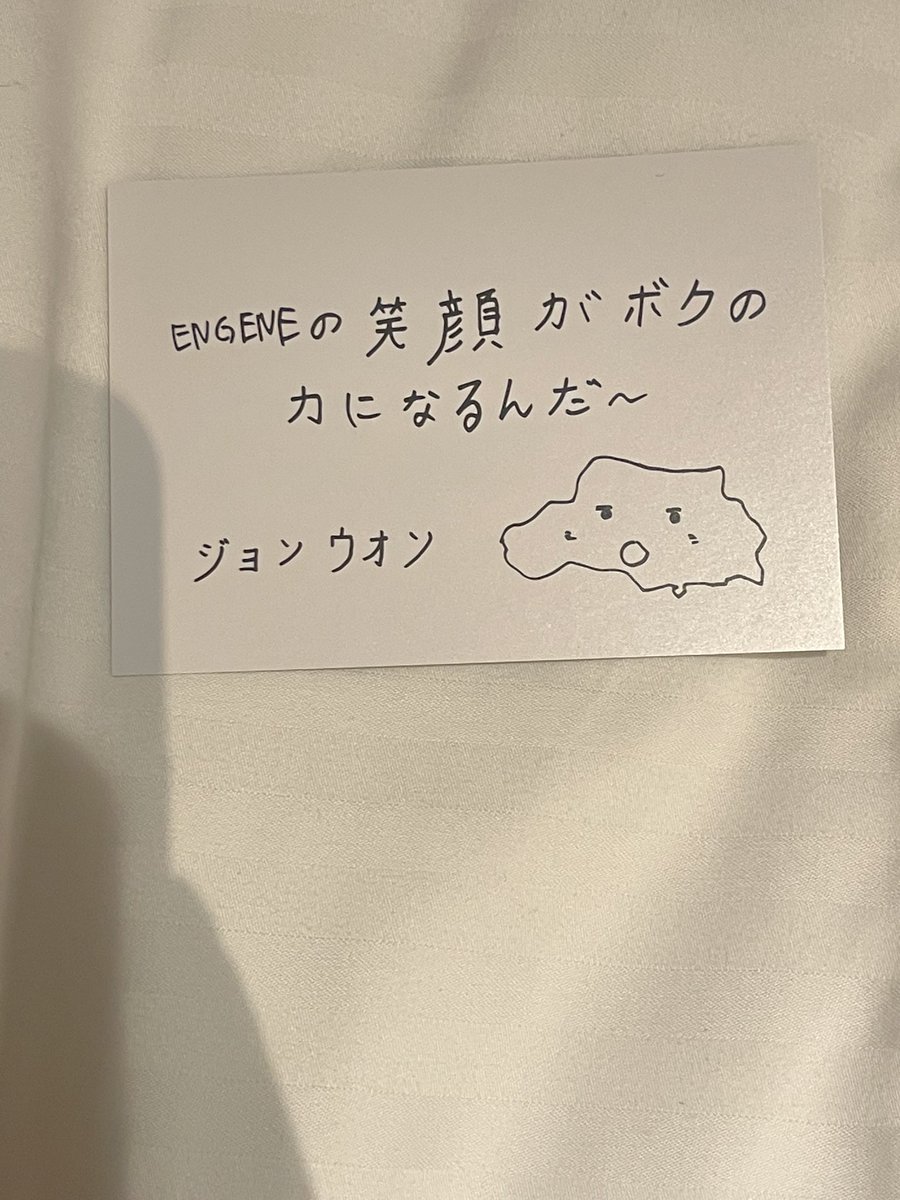 ENGENEの笑顔がボクの
力になるんだ〜
ジョンウオン